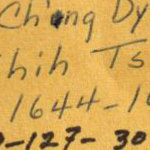 Ch'ing Dy
hih Ts
1644-1
-127-30